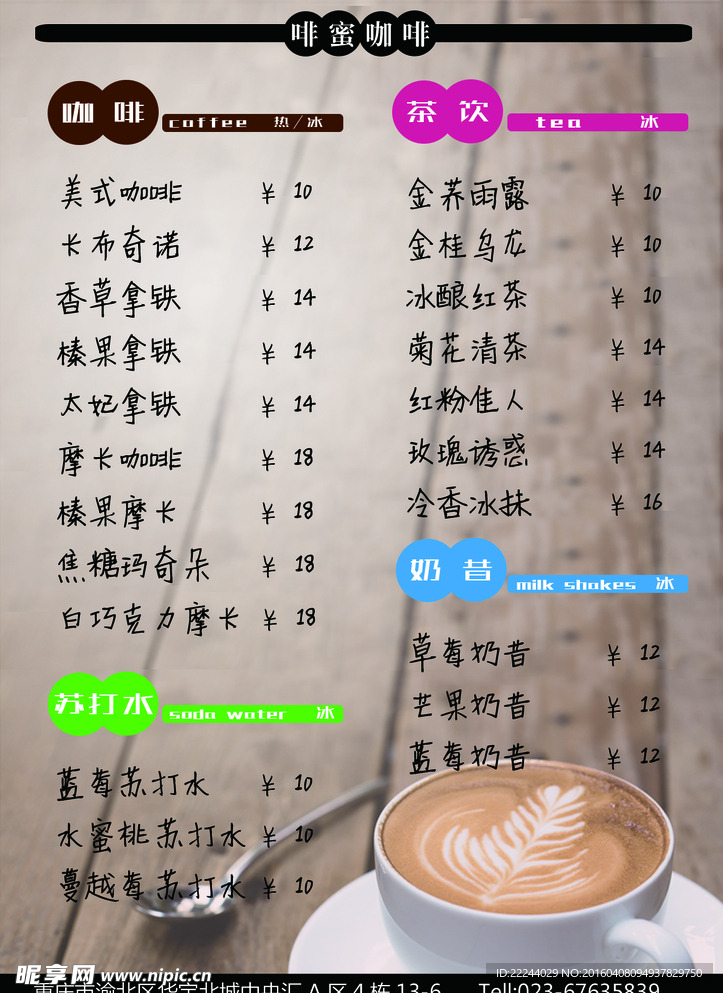 啡蜜咖啡
咖啡 coffee 热/冰
美式咖啡 ¥ 10
卡布奇诺 ¥ 12
香草拿铁 ¥ 14
榛果拿铁 ¥ 14
太妃拿铁 ¥ 14
摩卡咖啡 ¥ 18
榛果摩卡 ¥ 18
焦糖玛奇朵 ¥ 18
白巧克力摩卡 ¥ 18
苏打水 soda water 冰
蓝莓苏打水 ¥ 10
水蜜桃苏打水 ¥ 10
蔓越莓苏打水 ¥ 10
茶饮 tea 冰
金荞雨露 ¥ 10
金桂乌龙 ¥ 10
冰酿红茶 ¥ 10
菊花清茶 ¥ 14
红粉佳人 ¥ 14
玫瑰诱惑 ¥ 14
冷香冰抹 ¥ 16
奶昔 milk shakes 冰
草莓奶昔 ¥ 12
芒果奶昔 ¥ 12
蓝莓奶昔 ¥ 12
昵享网 www.nipic.cn
ID:22244029 NO:20160408094937829750
重庆市渝北区华宇北城中央汇A区4栋13-6 Tell:023-67635839